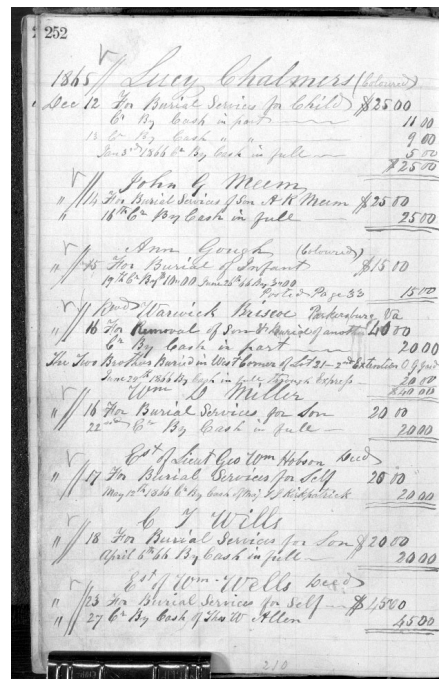 252
1865 Lucy Chalmers (Coloured)
Dec 12 For Burial Services for Child $25 00
Cr By Cash in part 11 00
13 Cr By Cash in " 9 00
Jan 3rd 1866 Cr By Cash in full 5 00
$25 00
John G Meem
" 14 For Burial Services of Son A R Meem $25 00
" 16th Cr By Cash in full 25 00
Ann Gough (Coloured)
" 15 For Burial of Infant $15 00
19th Cr By 10 00 June 26th 66 By 5 00
Posted Page 33 15 00
Warwick Briscoe Parkersburg Va
" 16 For Removal of Son & Burial of another 40 00
Cr By Cash in part 20 00
The Two Brothers Buried in West Corner of Lot 21 - 2nd Extention O G yard
June 20th 1866 By Cash in full Through Express 20 00
$40 00
Wm D Miller
" 16 For Burial Services for Son 20 00
22nd Cr By Cash in full 20 00
Est of Lieut Geo Wm Hobson Decd
" 17 For Burial Services for Self 20 00
May 12th 1866 Cr By Cash of Maj Kirkpatrick 20 00
C T Wills
" 18 For Burial Services for Son $20 00
April 6th 66 By Cash in full 20 00
Est of Wm Wells Decd
" 23 For Burial Services for Self $45 00
" 27 Cr By Cash of Thos W Allen 45 00
210